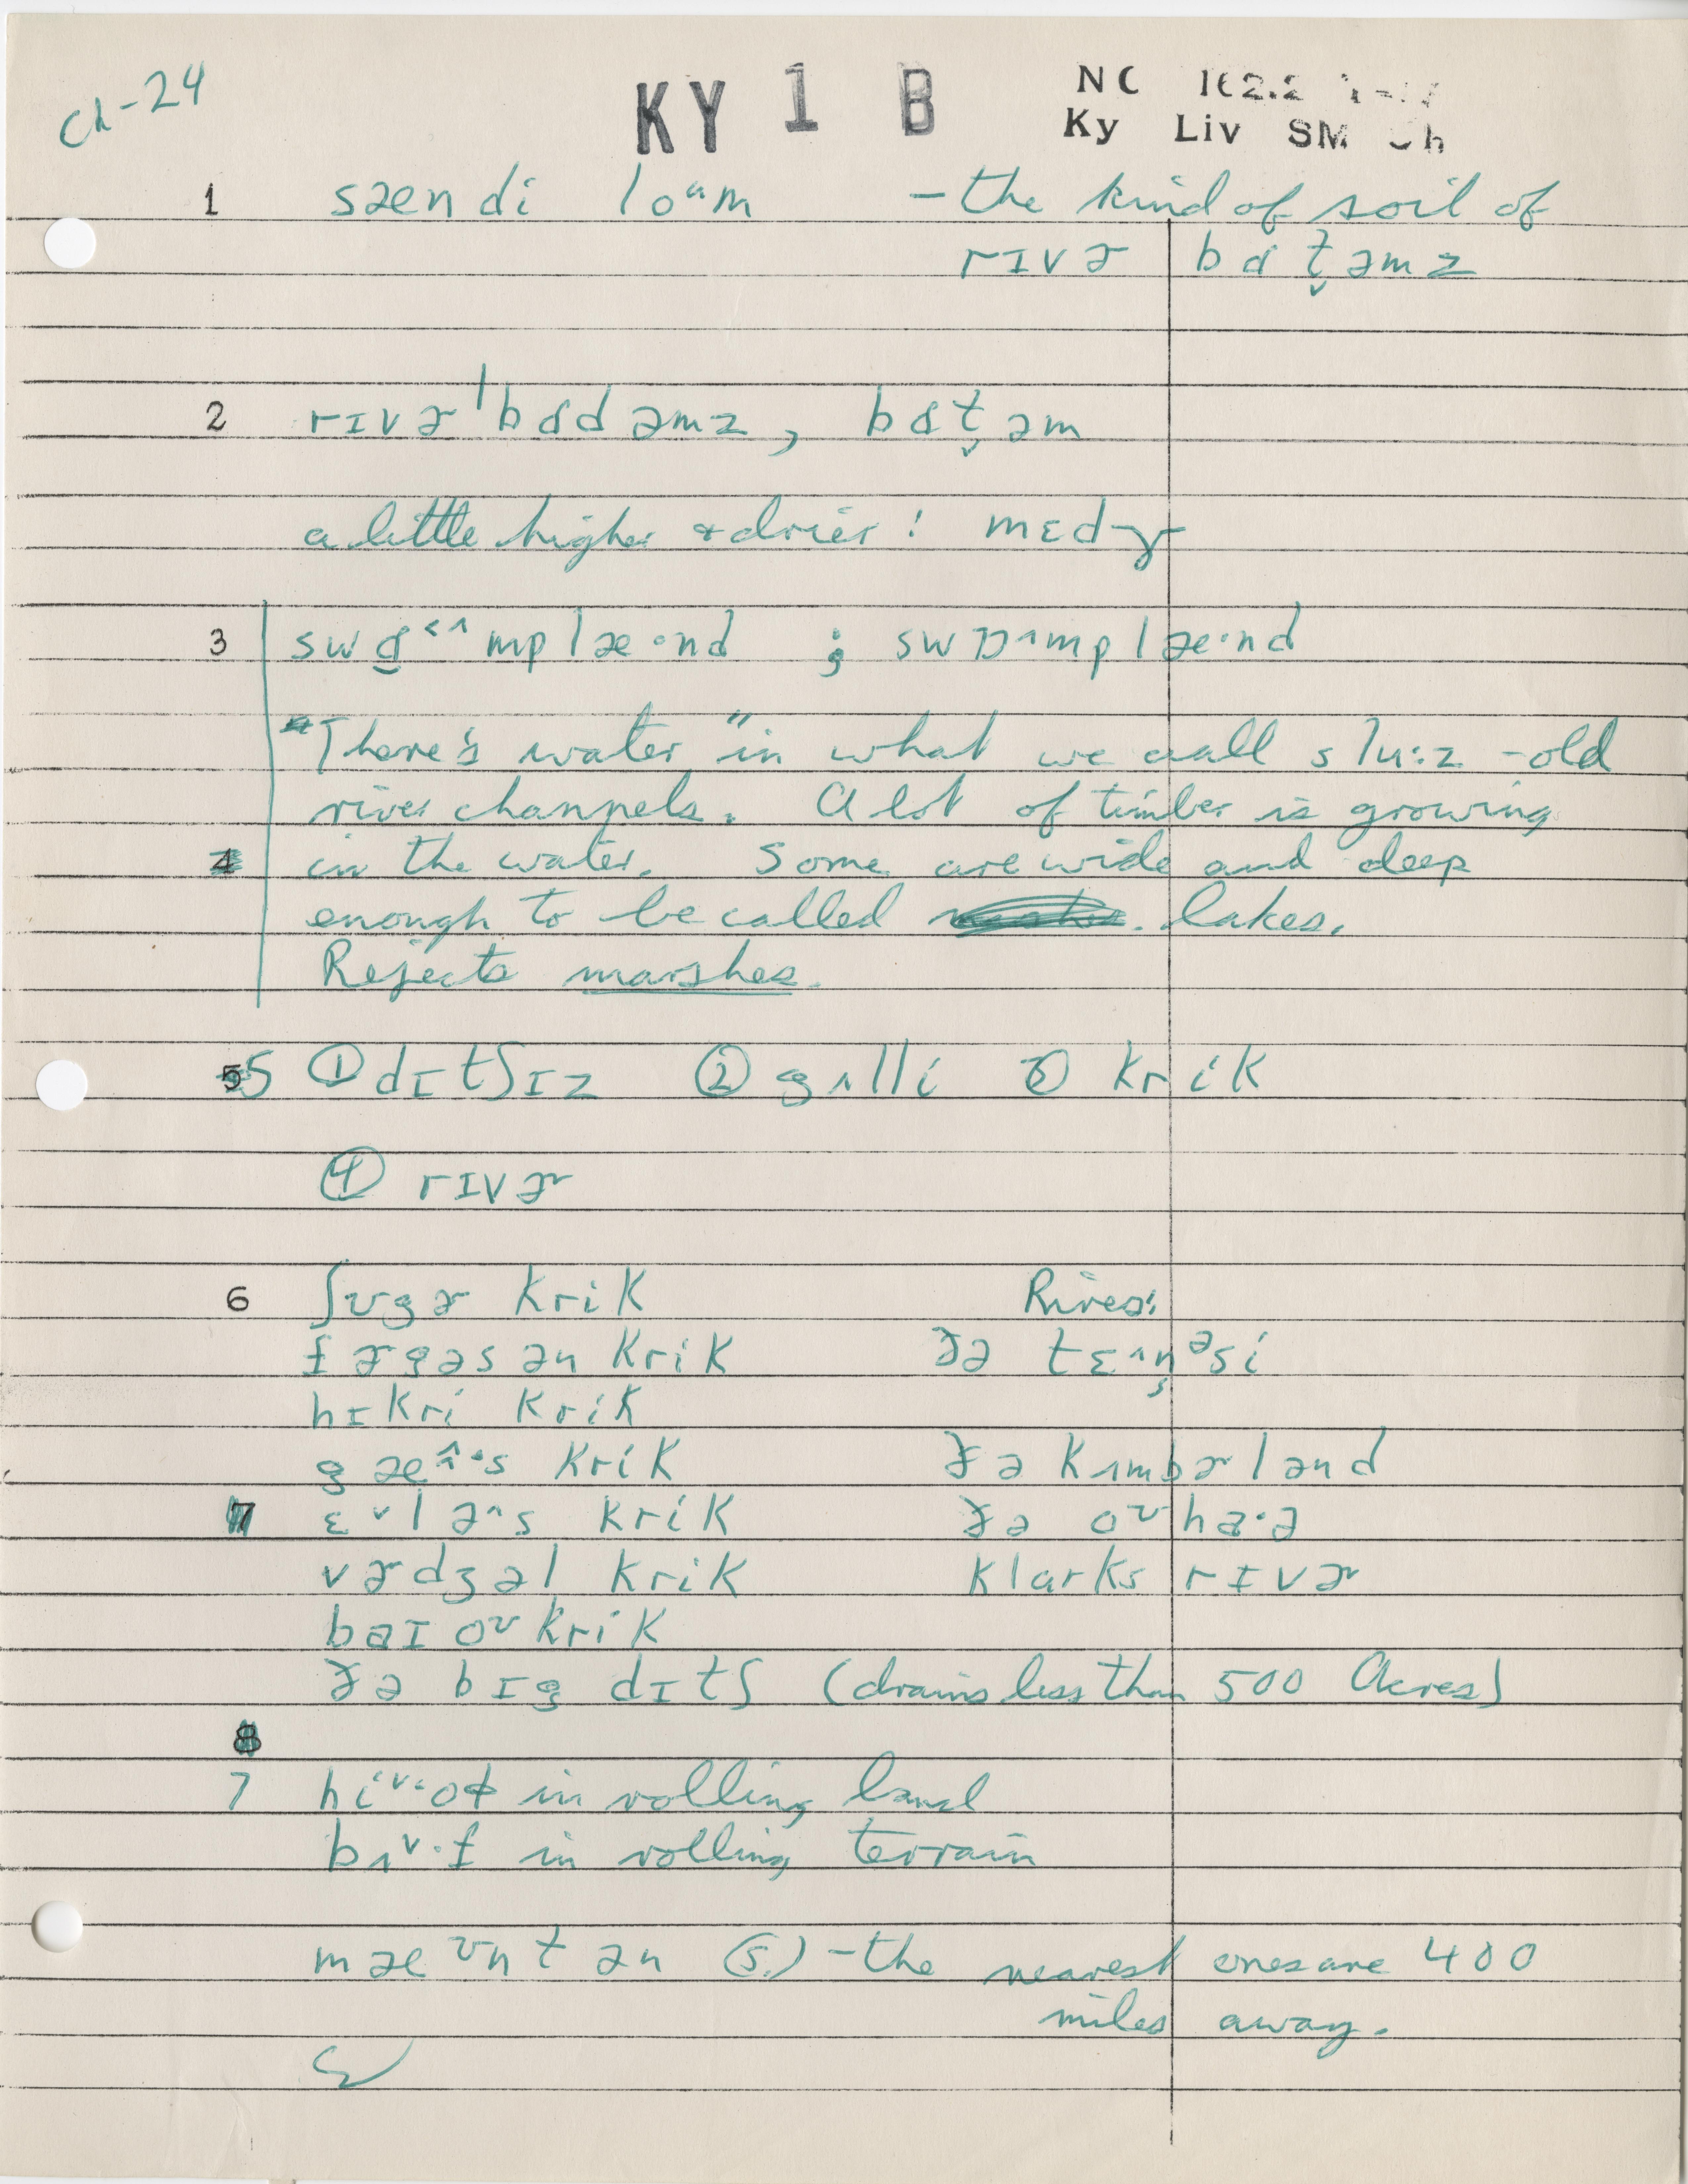 Ch-24
KY 1 B
NC 162.2
Ky Liv SM Ch
1 sændi loᵘm – the kind of soil of
rɪvɚ bɑt̬əmz
2 rɪvɚ ˈbɑdəmz, bɑt̬əm
a little higher & drier: mɛdɚ
3 swɑ˂˄mplæ·nd ; swɒ˄mplæ·nd
"There's water" in what we call slu:z – old
river channels. A lot of timber is growing
4 in the water. Some are wide and deep
enough to be called lakes.
Rejects marshes.
5 ① dɪtʃɪz ② gʌlli ③ krik
④ rɪvɚ
6 ʃʊgɚ krik Rivers:
fɚgəsən krik ðə tɛ˄n̩ᵊsi
hɪkri krik
gæ˄·s krik ðə kʌmbɚlənd
7 ɛ˅lə˄s krik ðə oʊhaˑə
vɚdʒəl krik klarks rɪvɚ
baɪoʊ krik
ðə bɪg dɪtʃ (drains less than 500 Acres)
8
7 in rolling land
bʌ˅·f in rolling terrain
mæʊntən (s.) – the nearest ones are 400
miles away.